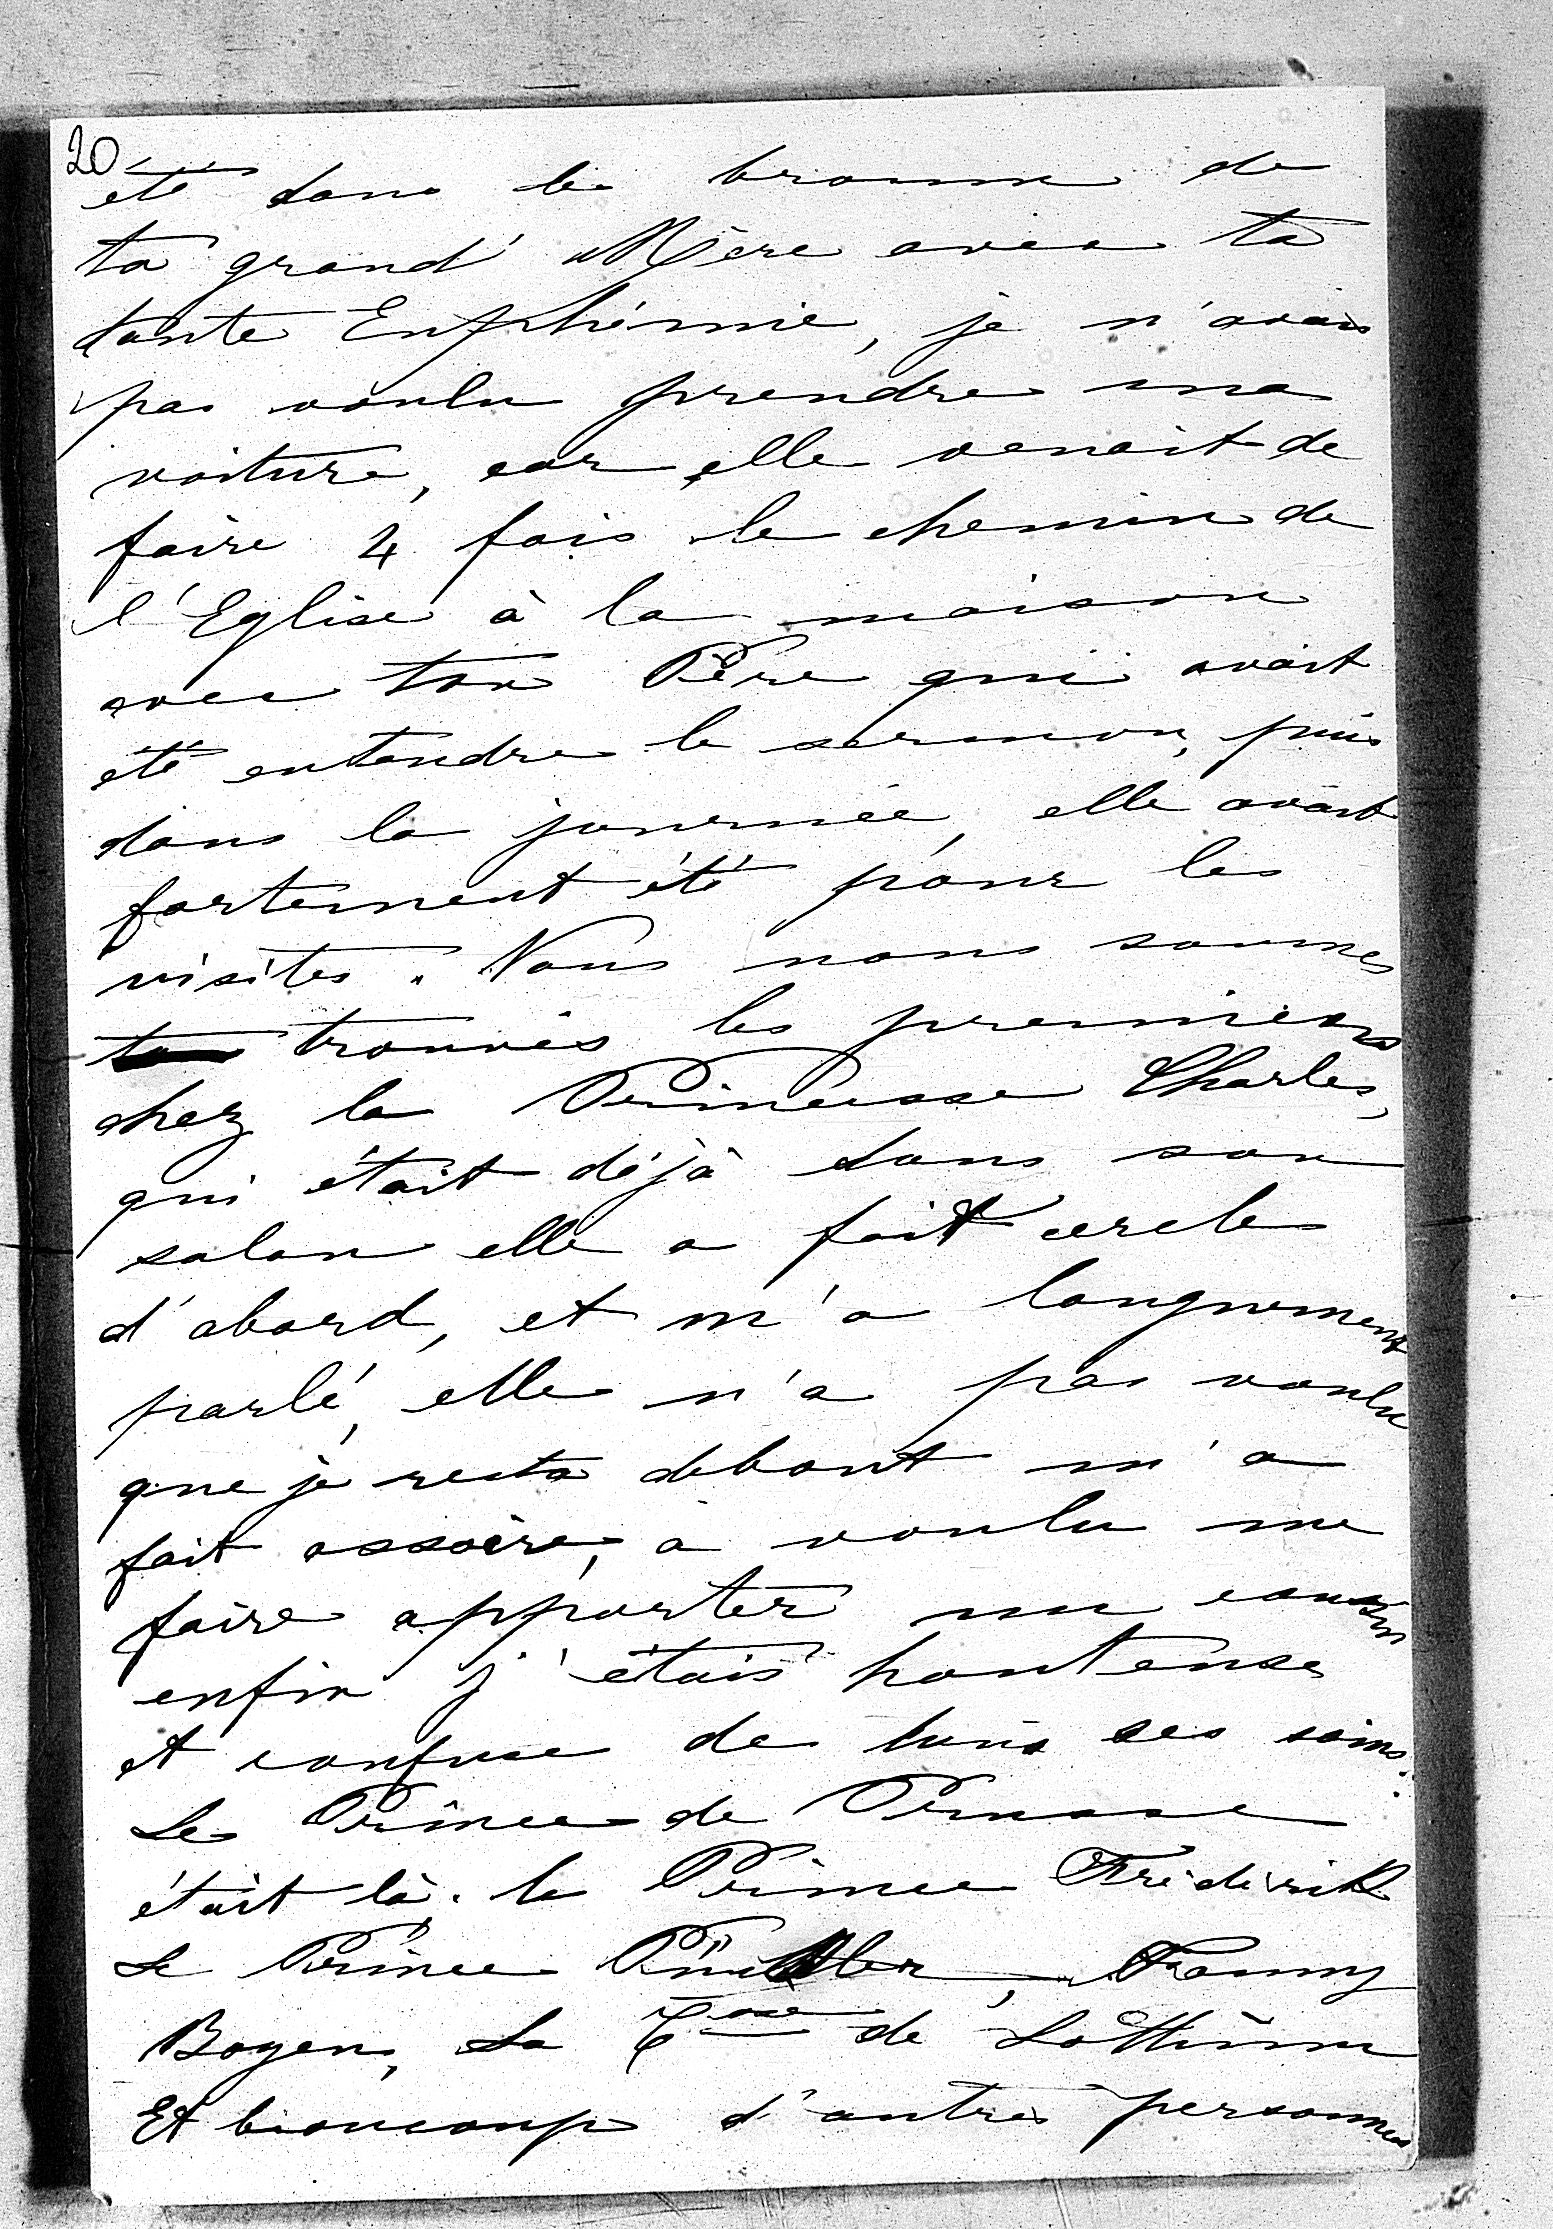 20
été dans le brouum de
ta grand' Mère avec ta
tante Euphémie, je n'avais
pas voulu prendre ma
voiture, car elle venait de
faire 4 fois le chemin de
l'Eglise à la maison
avec ton Père qui avait
été entendre le sermon, puis
dans la journée, elle avait
fortement été pour les
visites. Nous nous sommes
trouvés les premiers
chez la Princesse Charles,
qui était déjà dans son
salon elle a fait cercle
d'abord, et m'a longuement
parlé, elle n'a pas voulu
que je resta debout m'a
fait assoire, a voulu me
faire apporter un coussin
enfin j'étais honteuse
et confuse de tous ses soins.
Le Prince de Prusse
était là. le Prince Frédérik
Le Prince Pückler, Fanny
Boyen, La Ctesse de Lottum
Et beaucoup d'autres personnes